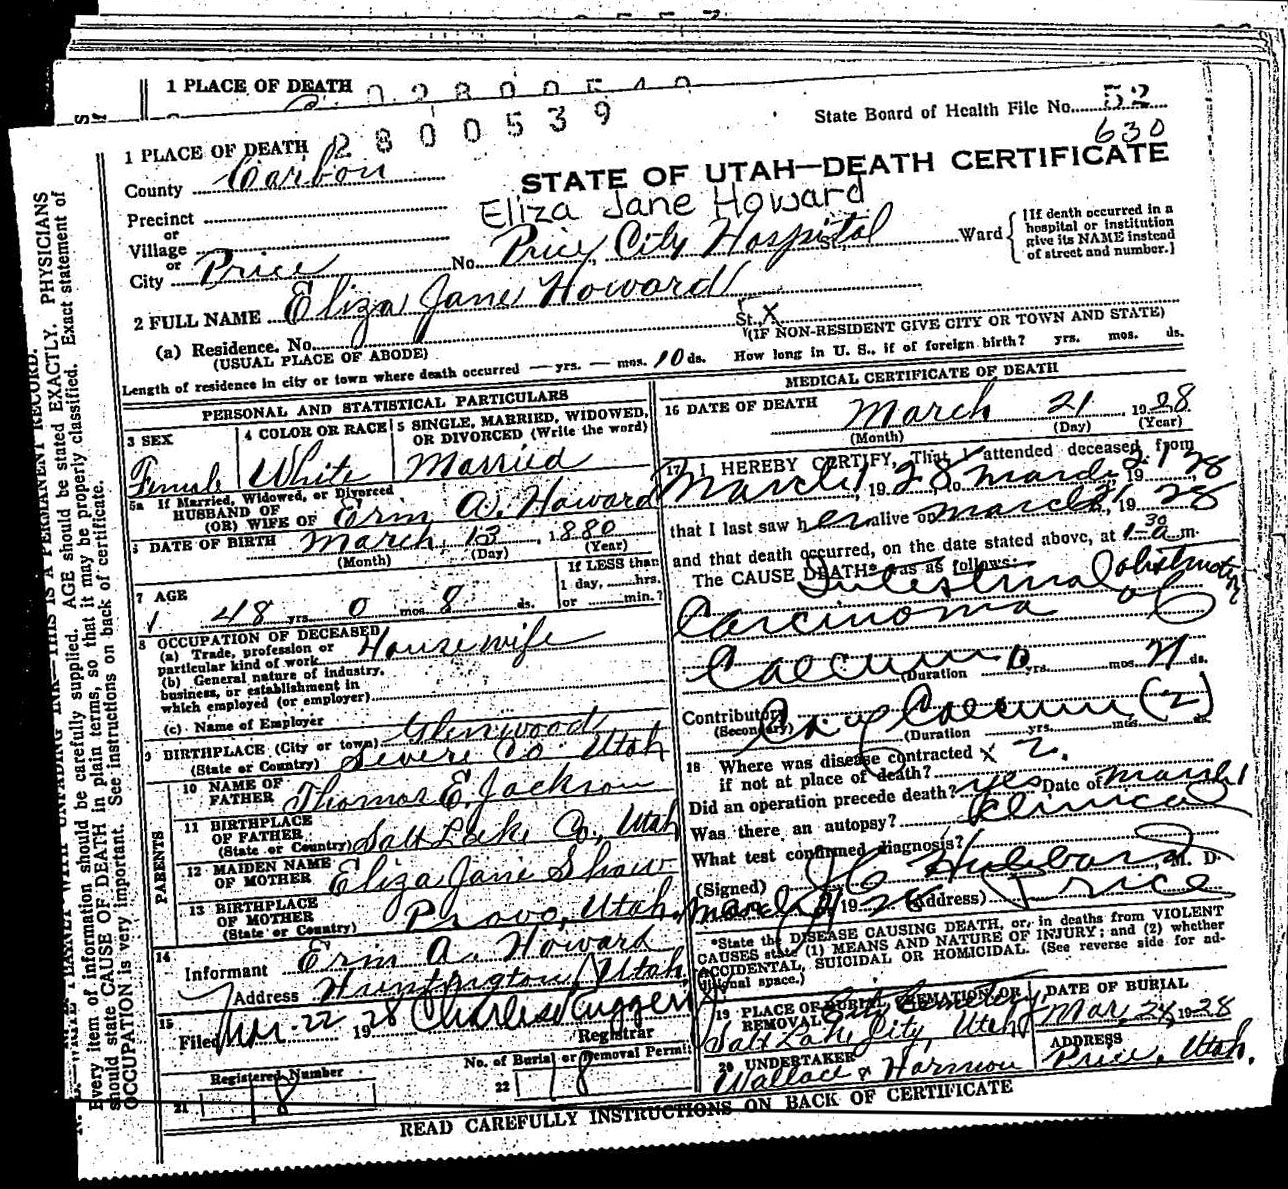 1 PLACE OF DEATH
2800539
State Board of Health File No. 52
630
1 PLACE OF DEATH
County Carbon
STATE OF UTAH—DEATH CERTIFICATE
Eliza Jane Howard
Precinct
or
Village
or
City Price No. Price City Hospital Ward
[If death occurred in a
hospital or institution
give its NAME instead
of street and number.]
2 FULL NAME Eliza Jane Howard
(a) Residence. No. St., X
(USUAL PLACE OF ABODE) (IF NON-RESIDENT GIVE CITY OR TOWN AND STATE)
Length of residence in city or town where death occurred — yrs. — mos. 10 ds. How long in U. S., if of foreign birth? yrs. mos. ds.
PERSONAL AND STATISTICAL PARTICULARS
3 SEX
Female
4 COLOR OR RACE
White
5 SINGLE, MARRIED, WIDOWED,
OR DIVORCED (Write the word)
Married
5a If Married, Widowed, or Divorced
HUSBAND OF
(OR) WIFE OF Erin A. Howard
6 DATE OF BIRTH March 13, 1880
(Month) (Day) (Year)
7 AGE
48 yrs. 0 mos. 8 ds.
If LESS than
1 day, hrs.
or min.?
8 OCCUPATION OF DECEASED
(a) Trade, profession or
particular kind of work Housewife
(b) General nature of industry,
business, or establishment in
which employed (or employer)
(c) Name of Employer
9 BIRTHPLACE (City or town) Glenwood
(State or Country) Severe Co. Utah
PARENTS
10 NAME OF
FATHER Thomas E. Jackson
11 BIRTHPLACE
OF FATHER
(State or Country) Salt Lake Co., Utah
12 MAIDEN NAME
OF MOTHER Eliza Jane Shaw
13 BIRTHPLACE
OF MOTHER
(State or Country) Provo, Utah.
14
Informant Erin A. Howard
Address Huntington, Utah
15
Filed Mar. 22 1928 Charles Ruggeri
Registrar
Registered Number
21 18
No. of Burial or Removal Permit
22 18
MEDICAL CERTIFICATE OF DEATH
16 DATE OF DEATH
March 21, 1928
(Month) (Day) (Year)
17 I HEREBY CERTIFY, That I attended deceased from
March 1, 1928, to March 21, 1928
that I last saw her alive on March 21, 1928
and that death occurred, on the date stated above, at 1-30 a m.
The CAUSE DEATH* was as follows:
Intestinal obstruction
Carcinoma of
Caecum
(Duration yrs. mos. 21 ds.
Contributory
(Secondary) Ca. of Caecum (2)
(Duration yrs. mos. ds.
18 Where was disease contracted
if not at place of death? X 2.
Did an operation precede death? yes Date of March 1
Was there an autopsy?
What test confirmed diagnosis? Clinical
(Signed) J C Hubbard, M. D.
March 21 1928 (Address) Price
*State the DISEASE CAUSING DEATH, or, in deaths from VIOLENT
CAUSES state (1) MEANS AND NATURE OF INJURY; and (2) whether
ACCIDENTAL, SUICIDAL OR HOMICIDAL. (See reverse side for ad-
ditional space.)
19 PLACE OF BURIAL, CREMATION OR
REMOVAL City Cemetery,
Salt Lake City, Utah
DATE OF BURIAL
Mar. 24, 1928
20 UNDERTAKER
Wallace & Harmon
ADDRESS
Price, Utah.
READ CAREFULLY INSTRUCTIONS ON BACK OF CERTIFICATE
WRITE PLAINLY WITH UNFADING INK—THIS IS A PERMANENT RECORD.
Every item of information should be carefully supplied. AGE should be stated EXACTLY. PHYSICIANS
should state CAUSE OF DEATH in plain terms, so that it may be properly classified. Exact statement of
OCCUPATION is very important. See instructions on back of certificate.